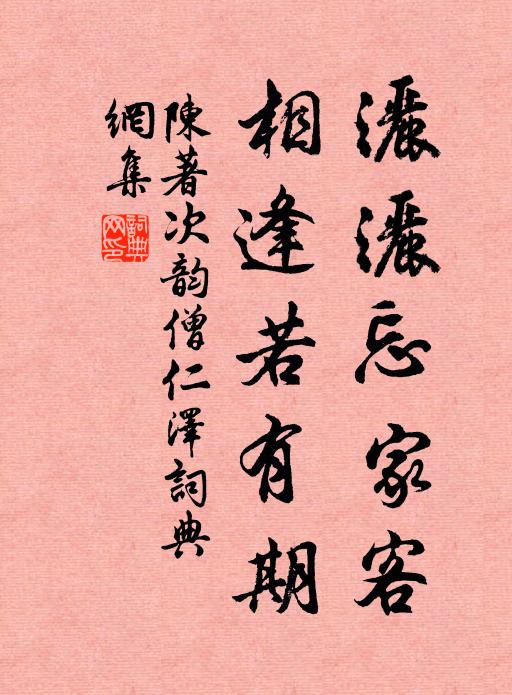 灑灑忘家客
相逢若有期
陳著次韵僧仁澤詞典
網集
詞典網印